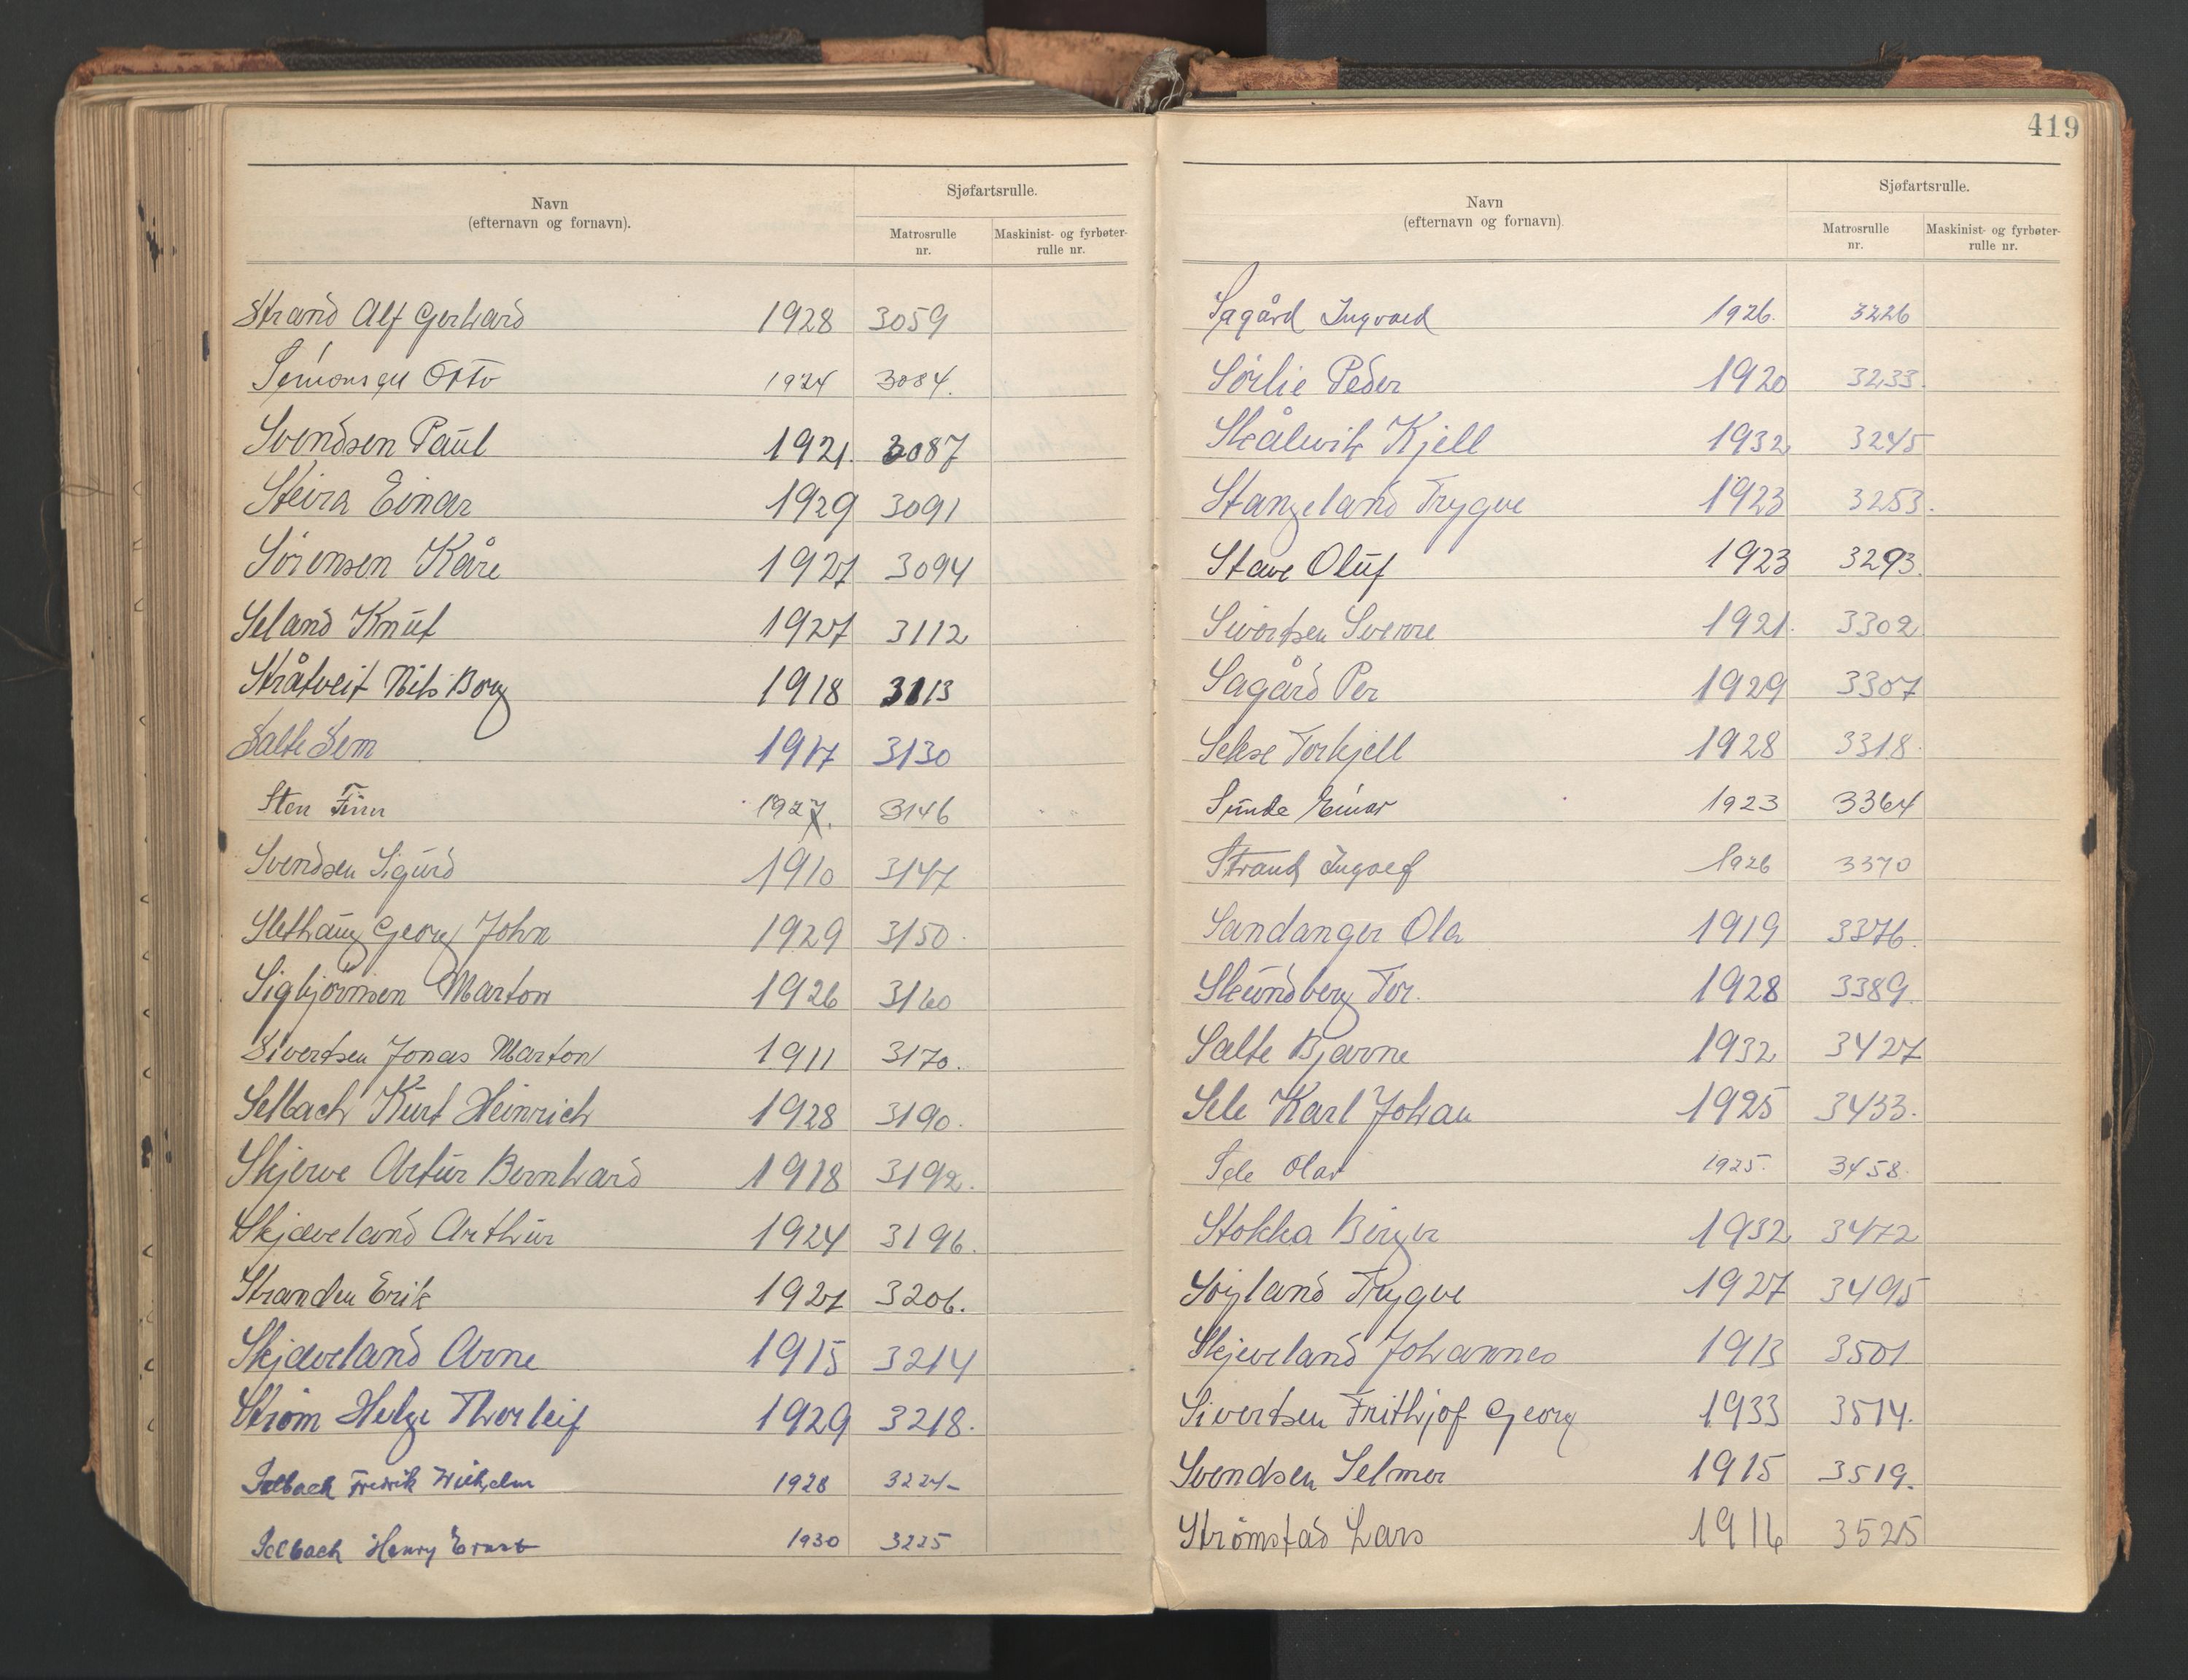 Navn
(efternavn og fornavn).
Sjøfartsrulle.
Matrosrulle
nr.
Maskinist- og fyrbøter-
rulle nr.
Strand Alf Gerhard 1928 3059
Simonsen Otto 1924 3084.
Svendsen Paul 1921. 3087
Steira Einar 1929 3091
Sørensen Kåre 1927 3094
Seland Knut 1927 3112
Stråtveit Nils Borg 1918 3113
Salte Sem 1917 3130
Sten Finn 1927. 3146
Svendsen Sigurd 1910 3147
Slethaug Georg John 1929 3150
Sigbjørnsen Marton 1926 3160
Sivertsen Jonas Marton 1911 3170.
Selbach Kurt Heinrich 1928 3190.
Skjerve Artur Bernhard 1918 3192.
Skjæveland Arthur 1924 3196.
Stranden Erik 1927 3206.
Skjæveland Arne 1915 3214
Strøm Helge Thorleif 1929 3218.
Selbach Fredrik Wilhelm 1928 3224
Selbach Henry Ernst 1930 3225
419
Navn
(efternavn og fornavn).
Sjøfartsrulle.
Matrosrulle
nr.
Maskinist- og fyrbøter-
rulle nr.
Sagård Ingvald 1926. 3226
Sørlie Peder 1920 3233.
Skålevik Kjell 1932 3245
Stangeland Trygve 1923 3253.
Stave Oluf 1923 3293.
Sivertsen Sverre 1921. 3302
Sagård Per 1929 3307
Sekse Torkjell 1928 3318.
Sunde Einar 1923 3364
Strand Ingolf 1926 3370
Sandanger Ola 1919 3376.
Skundberg Tor. 1928 3389.
Salte Bjarne 1932 3427
Sele Karl Johan 1925 3433.
Sele Olav 1925. 3458.
Stokka Birger 1932 3472
Søyland Trygve 1927 3495
Skjeveland Johannes 1913 3501
Sivertsen Frithjof Georg 1933 3514.
Svendsen Selmer 1915 3519.
Strømstad Lars 1916 3525